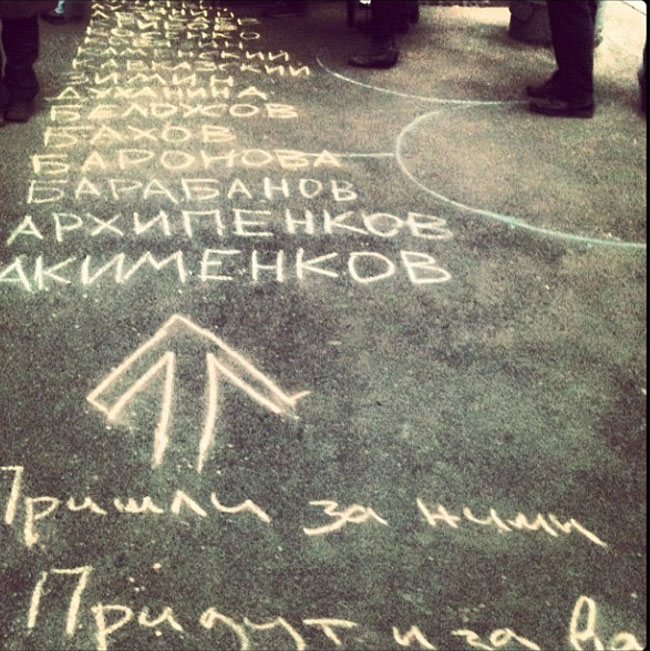 КАВКАЗСКИЙ
ЗИМИН
ДУХАНИНА
БЕЛОУСОВ
БАХОВ
БАРОНОВА
БАРАБАНОВ
АРХИПЕНКОВ
АКИМЕНКОВ
Пришли за ними
Придут и за ва